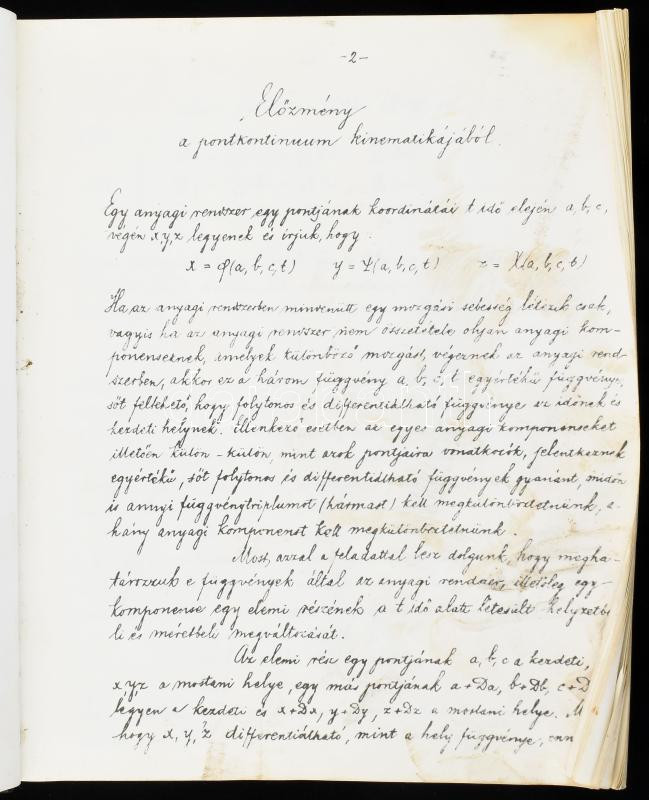 -2-
Előzmény
a pontkontinuum kinematikájából.
Egy anyagi rendszer egy pontjának koordinátái t idő elején a, b, c,
végén x, y, z legyenek és írjuk, hogy
x = φ(a, b, c, t) y = Ψ(a, b, c, t) z = χ(a, b, c, t)
Ha az anyagi rendszerben mindenütt egy mozgási sebesség létezik csak,
vagyis ha az anyagi rendszer nem összetétele olyan anyagi kom-
ponenseknek, amelyek különböző mozgást végeznek az anyagi rend-
szerben, akkor ez a három függvény a, b, c, t egyértékű függvénye,
sőt feltehető, hogy folytonos és differentiálható függvénye az időnek és
kezdeti helynek. Ellenkező esetben az egyes anyagi komponenseket
illetően külön-külön, mint azok pontjaira vonatkozók, jelentkeznek
egyértékű, sőt folytonos és differentiálható függvények gyanánt, midőn
is annyi függvénytriplumot (hármast) kell megkülönböztetnünk, a-
hány anyagi komponenst kell megkülönböztetnünk.
Most, azzal a feladattal lesz dolgunk, hogy megha-
tározzuk e függvények által az anyagi rendszer, illetőleg egy-
komponense egy elemi részének a t idő alatt létesült helyzetbe
li és méretbeli megváltozását.
Az elemi rész egy pontjának a, b, c a kezdeti,
x, y, z a mostani helye, egy más pontjának a+Da, b+Db, c+D
legyen a kezdeti és x+Dx, y+Dy, z+Dz a mostani helye. M
hogy x, y, z differentiálható, mint a hely függvénye,